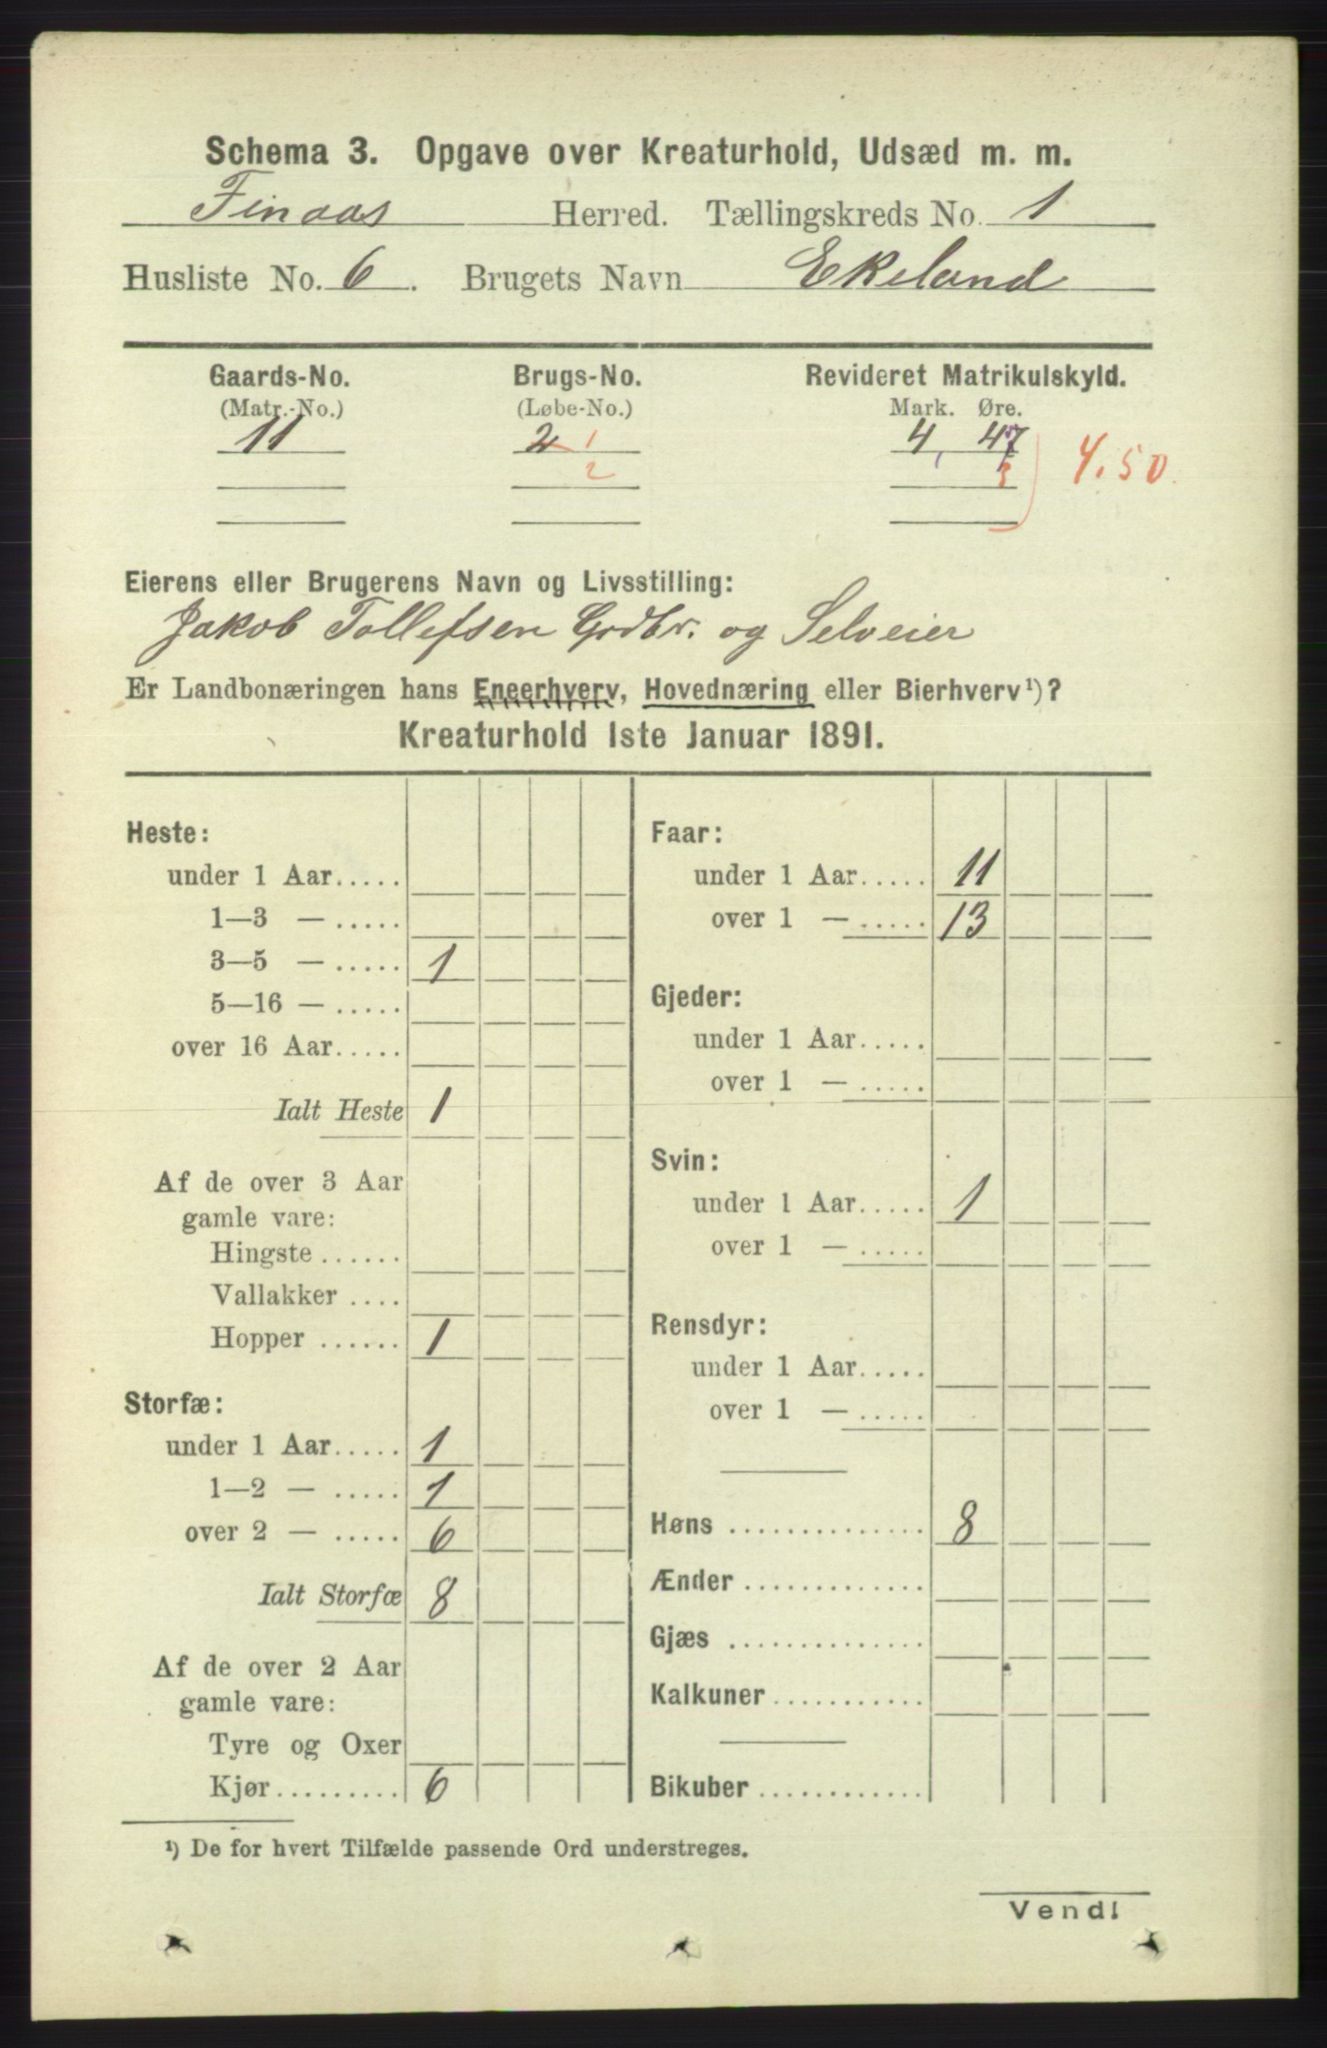 Schema 3. Opgave over Kreaturhold, Udsæd m. m.
Finaas Herred. Tællingskreds No. 1
Husliste No. 6. Brugets Navn Ekeland
Gaards-No. Brugs-No. Revideret Matrikulskyld.
(Matr.-No.) (Løbe-No.) Mark. Øre.
11 2 1 4, 47
2 3 4.50
Eierens eller Brugerens Navn og Livsstilling:
Jakob Tollefsen Grdbr. og Selveier
Er Landbonæringen hans Eneerhverv, Hovednæring eller Bierhverv¹)?
Kreaturhold 1ste Januar 1891.
Heste:
under 1 Aar.....
1—3 — .....
3—5 — ..... 1
5—16 — .....
over 16 Aar.....
Ialt Heste 1
Af de over 3 Aar
gamle vare:
Hingste ......
Vallakker ....
Hopper ...... 1
Storfæ:
under 1 Aar..... 1
1—2 — ..... 1
over 2 — ..... 6
Ialt Storfæ 8
Af de over 2 Aar
gamle vare:
Tyre og Oxer
Kjør......... 6
Faar:
under 1 Aar..... 11
over 1 — ..... 13
Gjeder:
under 1 Aar.....
over 1 — .....
Svin:
under 1 Aar..... 1
over 1 — .....
Rensdyr:
under 1 Aar.....
over 1 — .....
Høns .............. 8
Ænder .............
Gjæs ..............
Kalkuner...........
Bikuber............
¹) De for hvert Tilfælde passende Ord understreges.
Vend!